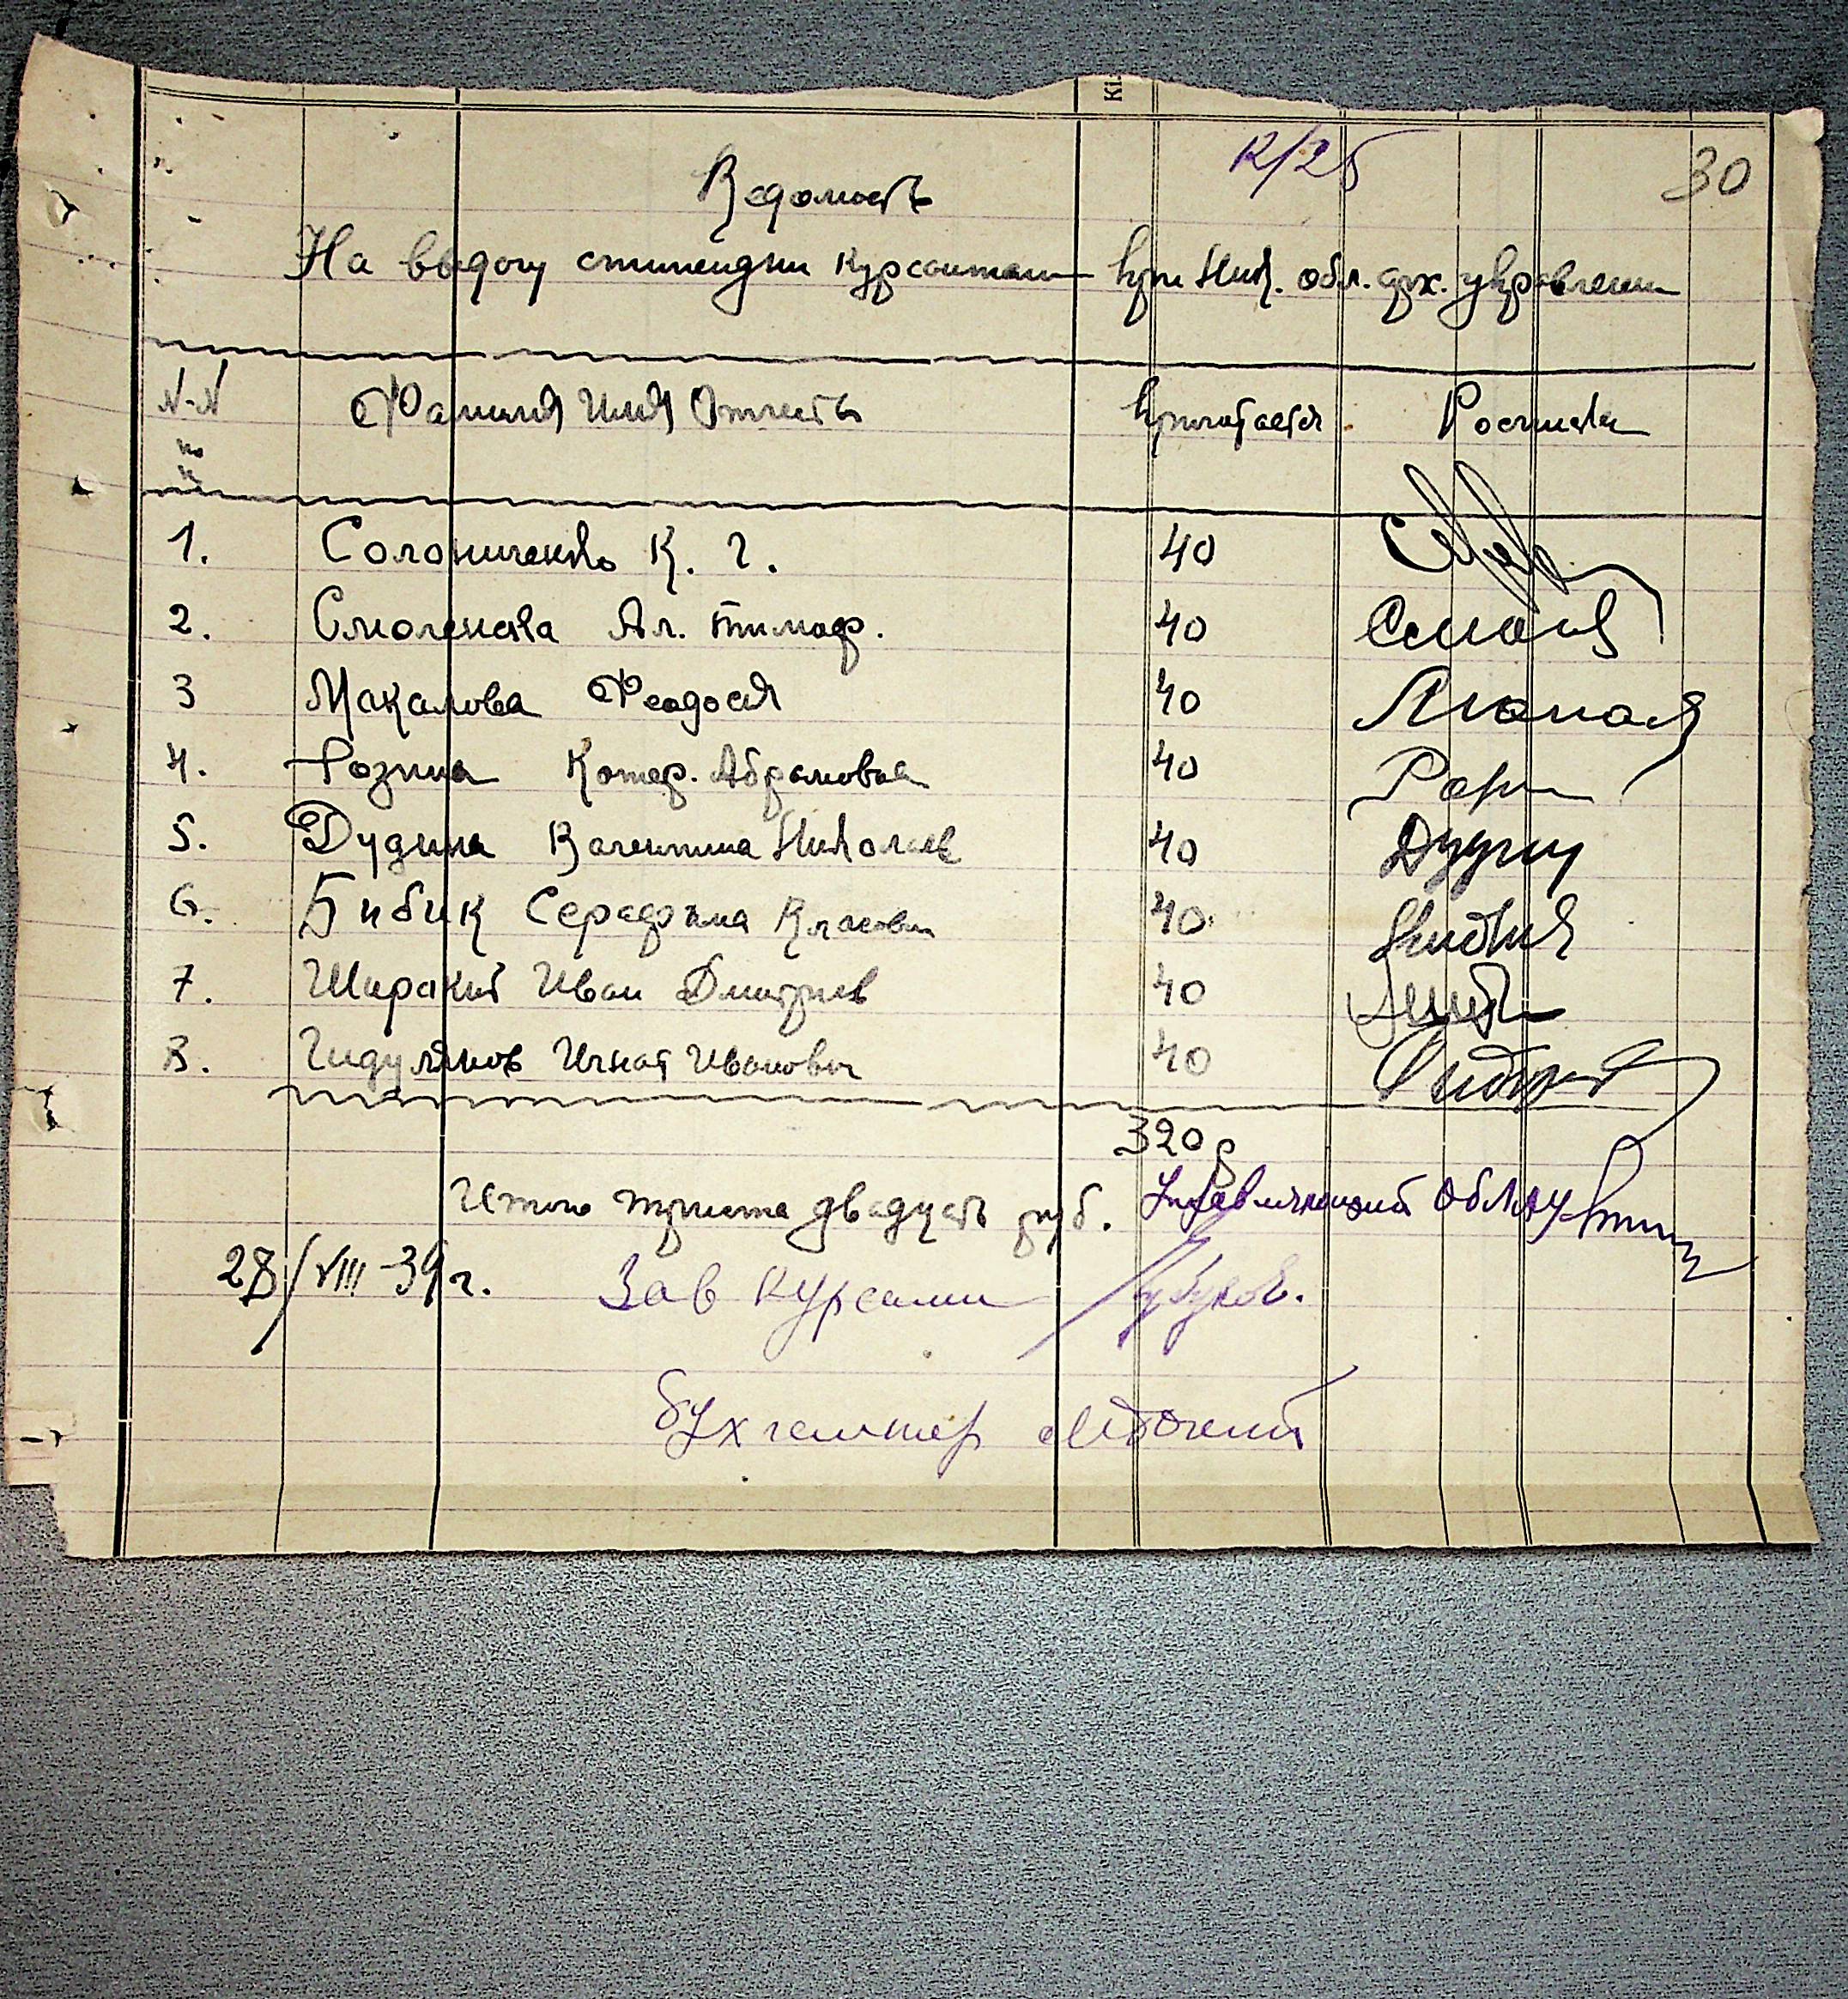 К/25
30
Ведомость
На выдачу стипендии курсантам при Ник. обл. арх. управлении
N-N по п Фамилия Имя Отчеств Причитается Росписка
1. Солониченко К. Г. 40
2. Смоленска Ал. Тимоф. 40
3 Макалова Феодосия 40
4. Розина Катер. Абрамовна 40
5. Дудина Валентина Николаев 40 Дудин
6. Бибик Серафима Власовн 40
7. Широкий Иван Дмитриев 40
8. Гидулянов Игнат Иванович 40
320 р
Итого триста двадцать руб. Управляющий ОблАУ
28/VIII-39 г. Зав курсами
бухгалтер